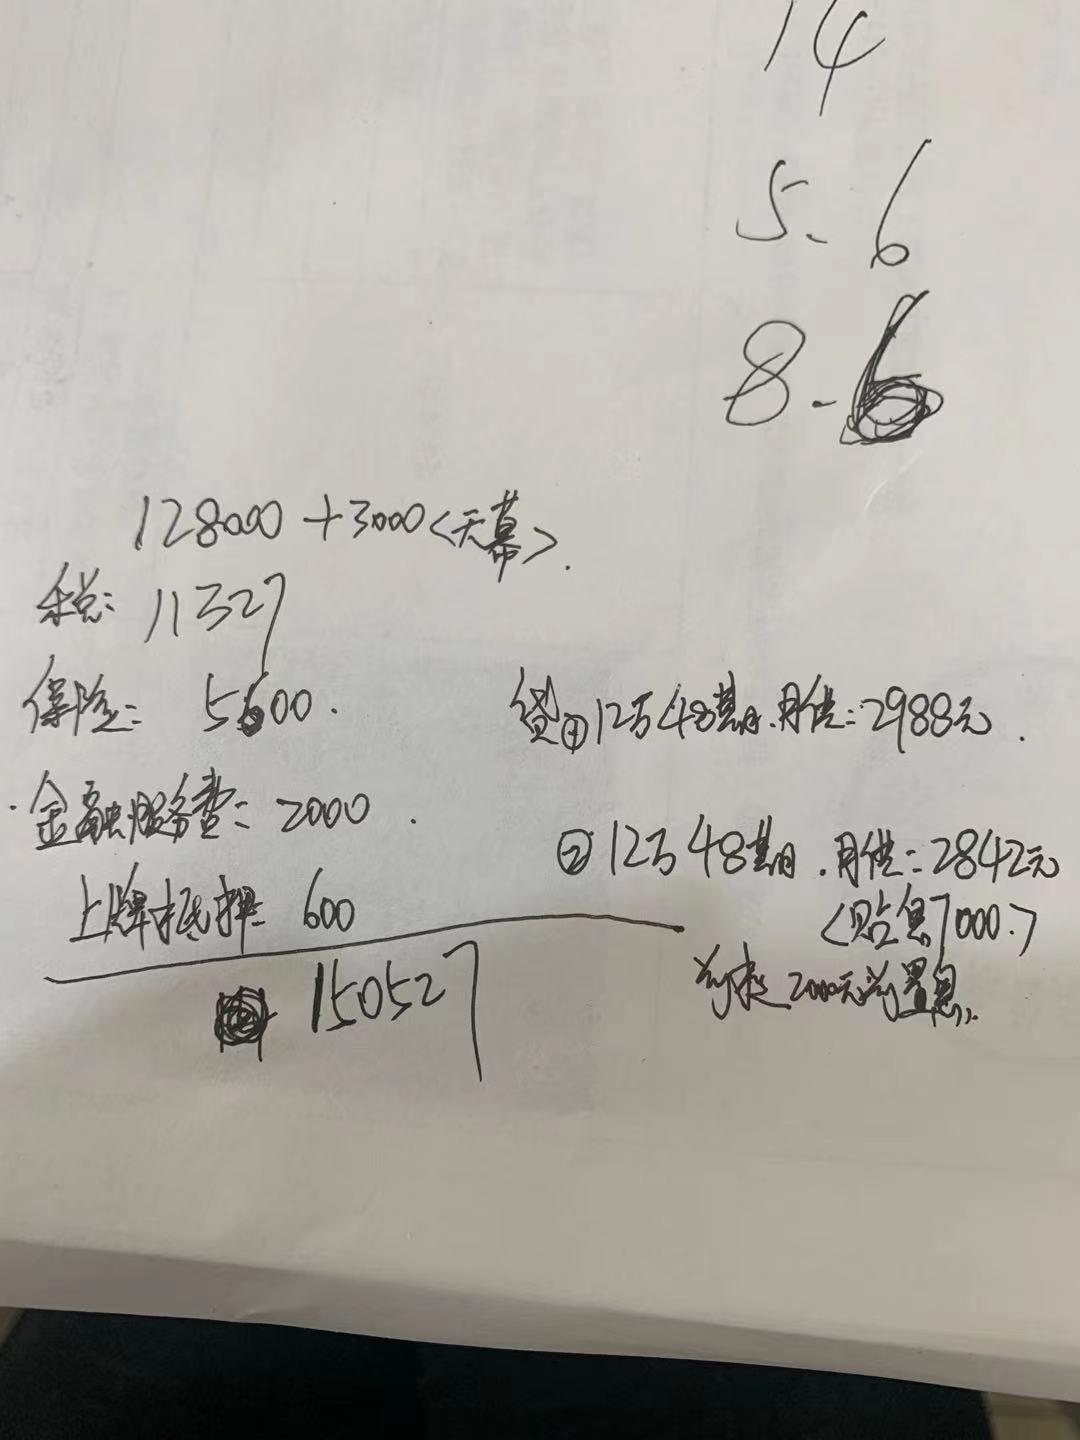 14
5-6
8-6
128000+3000<天幕>.
税: 11327
保险: 5600.
贷① 12万48期.月供:2988元.
金融服务费:2000.
② 12万48期.月供:2842元
上牌抵押: 600
<贴息7000.>
2000元前置息.
150527